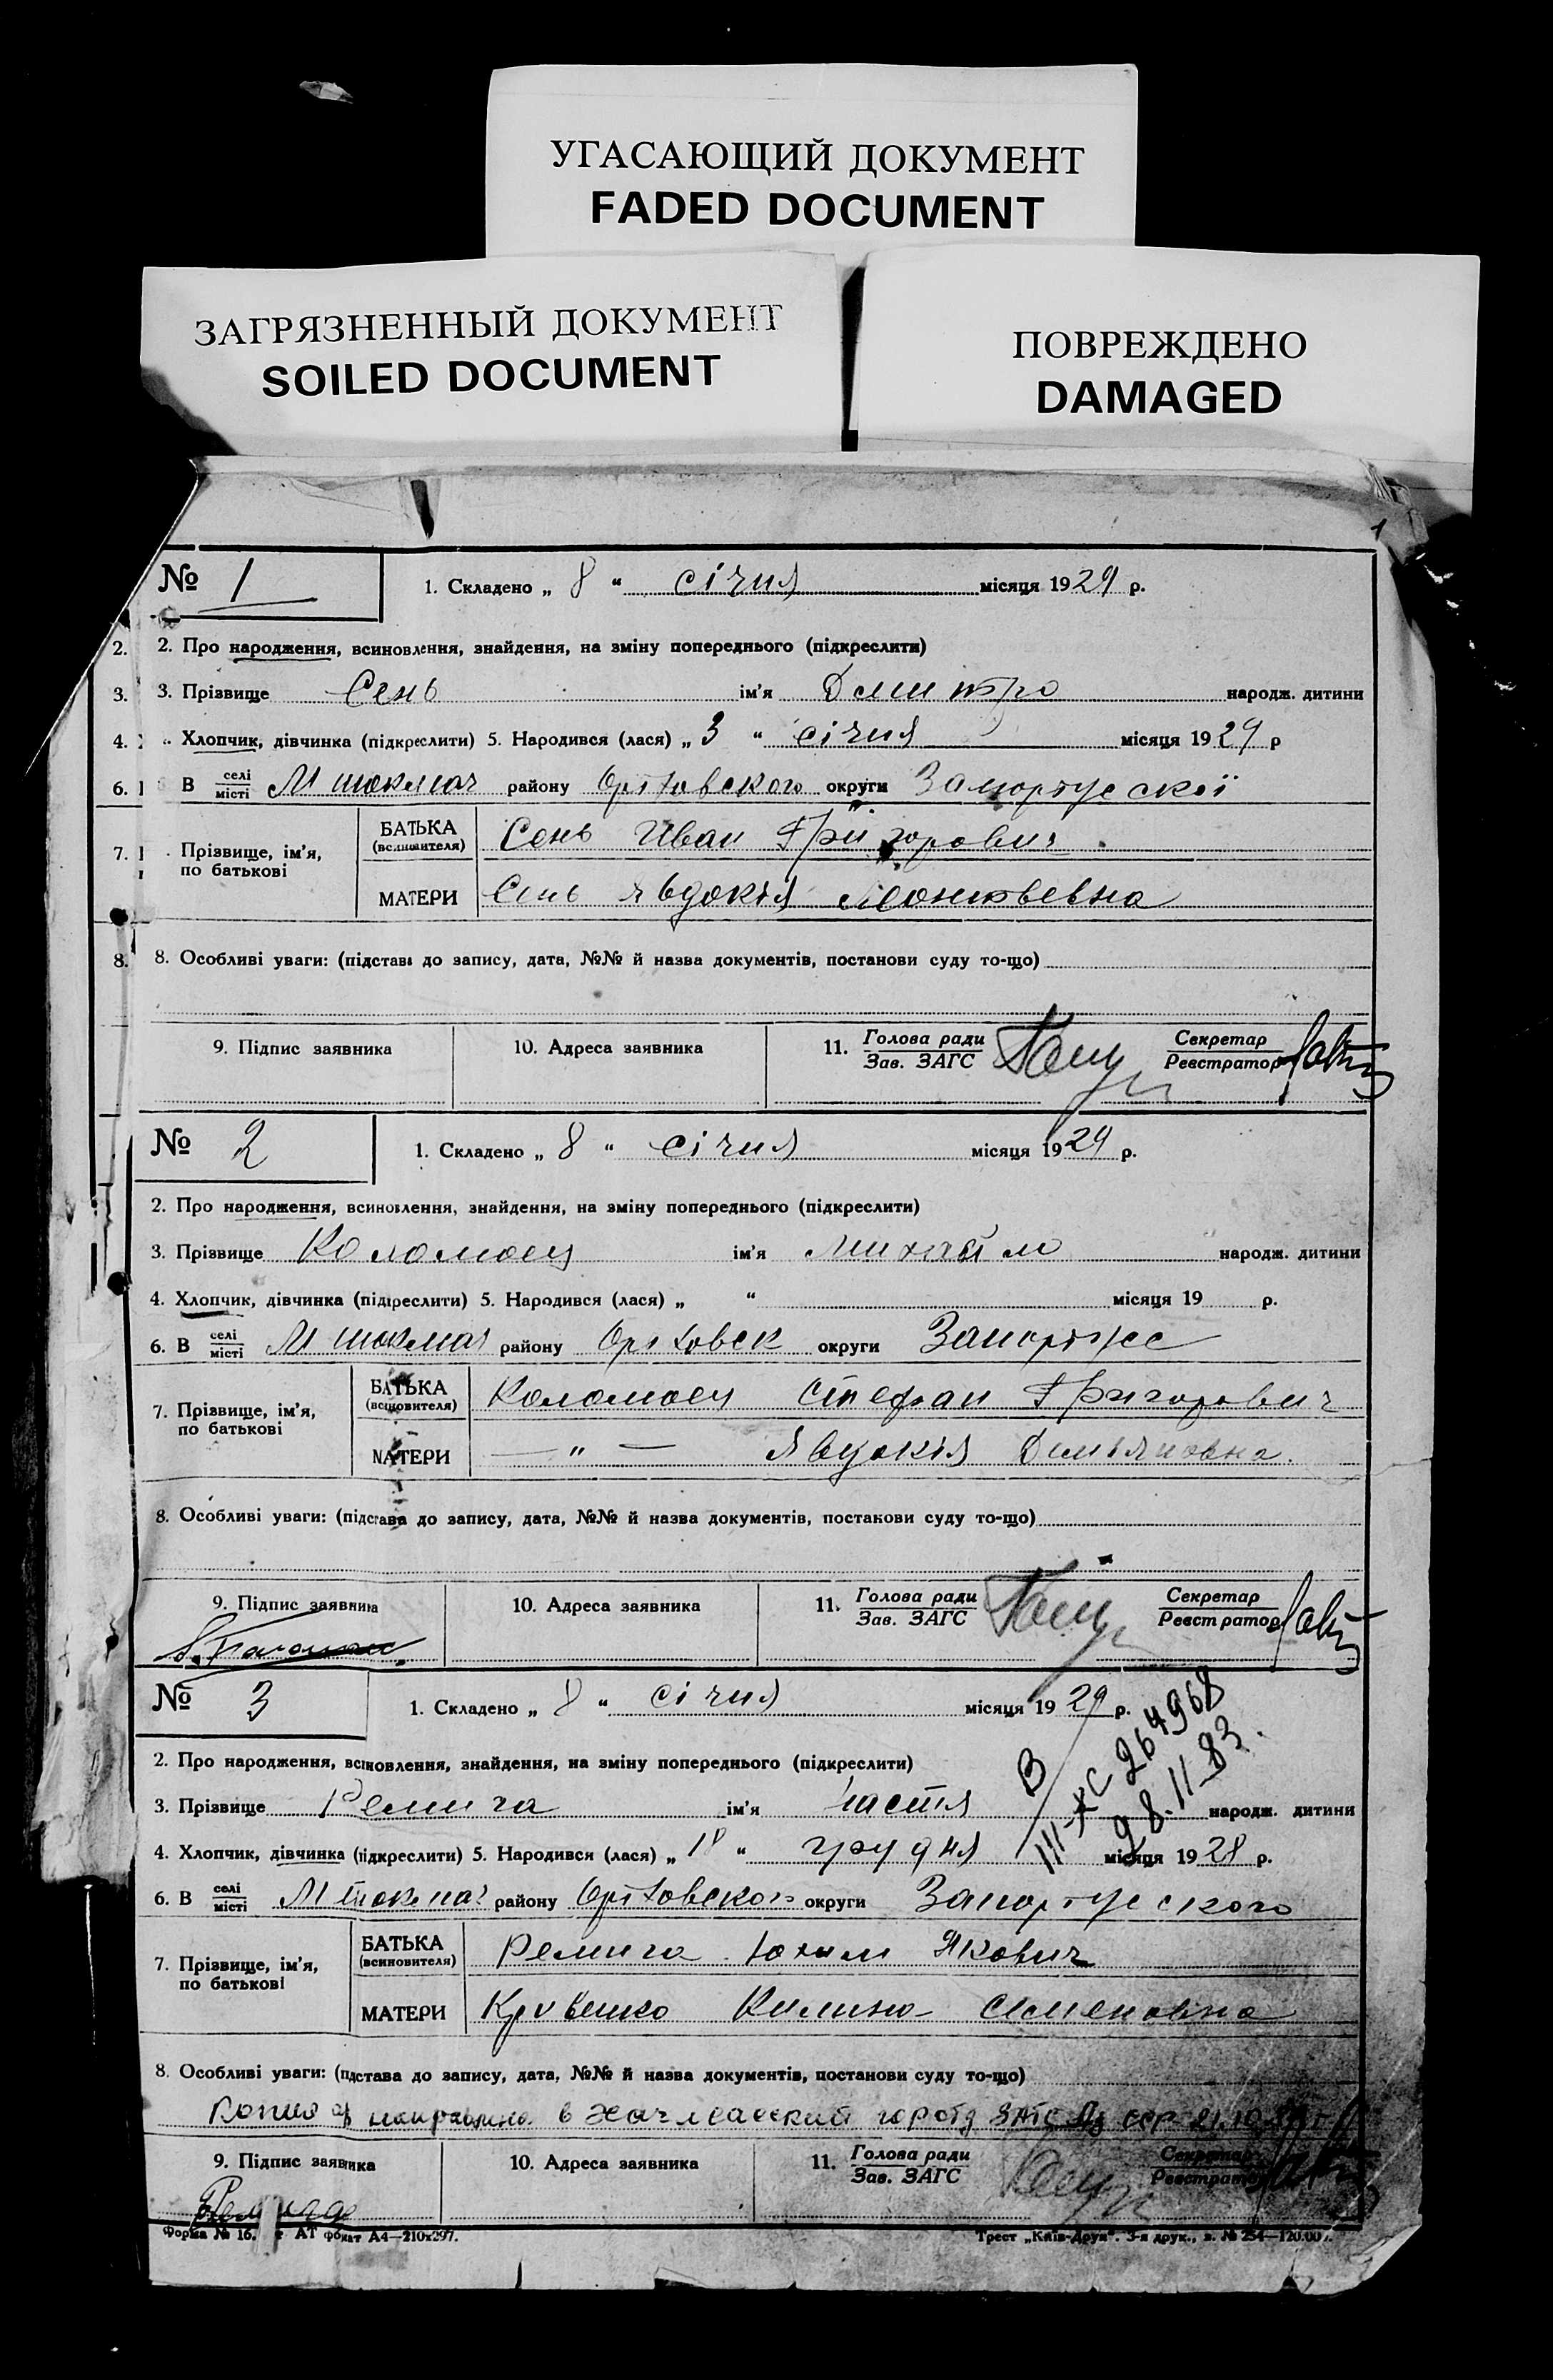 УГАСАЮЩИЙ ДОКУМЕНТ
FADED DOCUMENT
ЗАГРЯЗНЕННЫЙ ДОКУМЕНТ
SOILED DOCUMENT
ПОВРЕЖДЕНО
DAMAGED
1
№ 1 1. Складено „ 8 “ січня місяця 1929 р.
2. 2. Про народження, всиновлення, знайдення, на зміну попереднього (підкреслити)
3. 3. Прізвище Сень ім'я Дмитро народж. дитини
4. Хлопчик, дівчинка (підкреслити) 5. Народився (лася) „ 3 “ січня місяця 1929 р
6. В селі місті М токмач району Оріховского округи Запоріжскої
7. Прізвище, ім'я, по батькові БАТЬКА (всиновителя) Сень Иван Григорович
МАТЕРИ Сень Явдокія Леонтьевна
8. 8. Особливі уваги: (підстава до запису, дата, №№ й назва документів, постанови суду то-що)
9. Підпис заявника 10. Адреса заявника 11. Голова ради Зав. ЗАГС Секретар Реєстратор
№ 2 1. Складено „ 8 “ січня місяця 1929 р.
2. Про народження, всиновлення, знайдення, на зміну попереднього (підкреслити)
3. Прізвище Коломоец ім'я Михайло народж. дитини
4. Хлопчик, дівчинка (підкреслити) 5. Народився (лася) „ “ місяця 19 р.
6. В селі місті М токмач району Оріховск округи Запоріжс
7. Прізвище, ім'я, по батькові БАТЬКА (всиновителя) Коломоец Стефан Григорович
МАТЕРИ — „ — Явдокія Демьяновна.
8. Особливі уваги: (підстава до запису, дата, №№ й назва документів, постанови суду то-що)
9. Підпис заявника 10. Адреса заявника 11. Голова ради Зав. ЗАГС Секретар Реєстратор
№ 3 1. Складено „ 8 “ січня місяця 1929 р.
2. Про народження, всиновлення, знайдення, на зміну попереднього (підкреслити)
III-ЖС 264968
28.11.83.
3. Прізвище Ремига ім'я Настя народж. дитини
4. Хлопчик, дівчинка (підкреслити) 5. Народився (лася) „ 18 “ грудня місяця 1928 р.
6. В селі місті М токмач району Оріховского округи Запоріжского
7. Прізвище, ім'я, по батькові БАТЬКА (всиновителя) Ремига Юхим Якович
МАТЕРИ Кривенко Килина Семеновна
8. Особливі уваги: (підстава до запису, дата, №№ й назва документів, постанови суду то-що)
Копия направлена в ЗАГС
9. Підпис заявника 10. Адреса заявника 11. Голова ради Зав. ЗАГС Секретар Реєстратор
Форма № 16. АТ формат А4—210x297. Трест „Київ-Друк“. 3-я друк., з. № 254—120.00